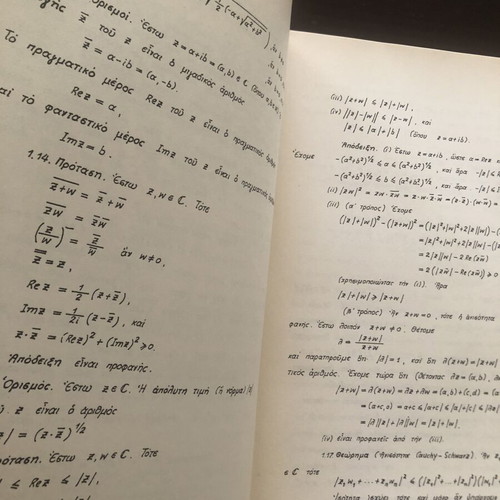 √½(-α+√α²+b²)
Ορισμοί. Ἔστω z=α+ib=(α,b)∈ℂ.
z̄ τοῦ z εἶναι ὁ μιγαδικός ἀριθμός
z̄ = α-ib = (α,-b).
Τό πραγματικό μέρος Rez τοῦ z εἶναι ὁ πραγματικός ἀριθμός
Rez = α,
τό φανταστικό μέρος Imz τοῦ z εἶναι ὁ πραγματικός
Imz = b.
1.14. Πρόταση. Ἔστω z,w∈ℂ. Τότε
\overline{z+w} = z̄ + w̄
\overline{zw} = z̄ w̄
\overline{(z/w)} = z̄/w̄ ἄν w≠0,
z̿ = z,
Rez = 1/2 (z+z̄),
Imz = 1/2i (z-z̄), καί
z·z̄ = (Rez)² + (Imz)² ≥ 0.
Ἀπόδειξη εἶναι προφανής.
Ὁρισμός. Ἔστω z∈ℂ. Ἡ ἀπόλυτη τιμή (ἤ νόρμα) |z|
z εἶναι ὁ ἀριθμός
z| = (z·z̄)^{1/2}
Πρόταση. Ἔστω z,w∈ℂ. Τότε
≤ Rez ≤ |z|,
(iii) |z+w| ≤ |z|+|w|,
(iv) ||z|-|w|| ≤ |z-w|, καί
|z| ≤ |α|+|b| (ὅπου z=α+ib).
Ἀπόδειξη. (i) Ἔστω z=α+ib, ὥστε α=Rez
Ἔχομε
-(α²+b²)^{1/2} ≤ α ≤ (α²+b²)^{1/2}, καί ἄρα -|z| ≤
-(α²+b²)^{1/2} ≤ b ≤ (α²+b²)^{1/2}, καί ἄρα -|z| ≤
(ii) |zw|² = zw·\overline{zw} = z·w·z̄·w̄ = (z·z̄)·(w·w̄)=
(iii) (α' τρόπος) Ἔχομε
(|z|+|w|)²-(|z+w|)² =(|z|²+|w|²+2|z||w|)-(
=|z|²+|w|²+2|z||w|-(
=2|z||w|-2Re(zw̄)
=2(|zw̄|-Re(zw̄)) ≥ 0
(χρησιμοποιώντας τήν (i). Ἄρα
|z|+|w| ≥ |z+w|
(β' τρόπος) Ἄν z+w=0, τότε ἡ ἀνισότητα
φανής. Ἔστω λοιπόν z+w≠0. Θέτομε
λ = |z+w|/z+w
καί παρατηροῦμε ὅτι |λ|=1, καί ὅτι λ(z+w)=|z+w|
τικός ἀριθμός. Ἔχομε τώρα ὅτι (θέτοντας λz=(α,b), λw
|z+w| = λ(z+w) = λz+λw = (α,b)+(c,d) = (α+
= (α+c,0) = α+c ≤ |α+c| ≤ |α|+|c| ≤ |λz
= |λ||z|+|λ||w| = |z|+|w|.
(iv) εἶναι προφανεῖς ἀπό τήν (iii).
1.17 Θεώρημα (Ἀνισότητα Cauchy-Schwarz). Ἄν
∈ℂ τότε
|z₁w₁+...+zₙwₙ|² ≤ (|z₁|²+...+|zₙ|²)(|w₁|²